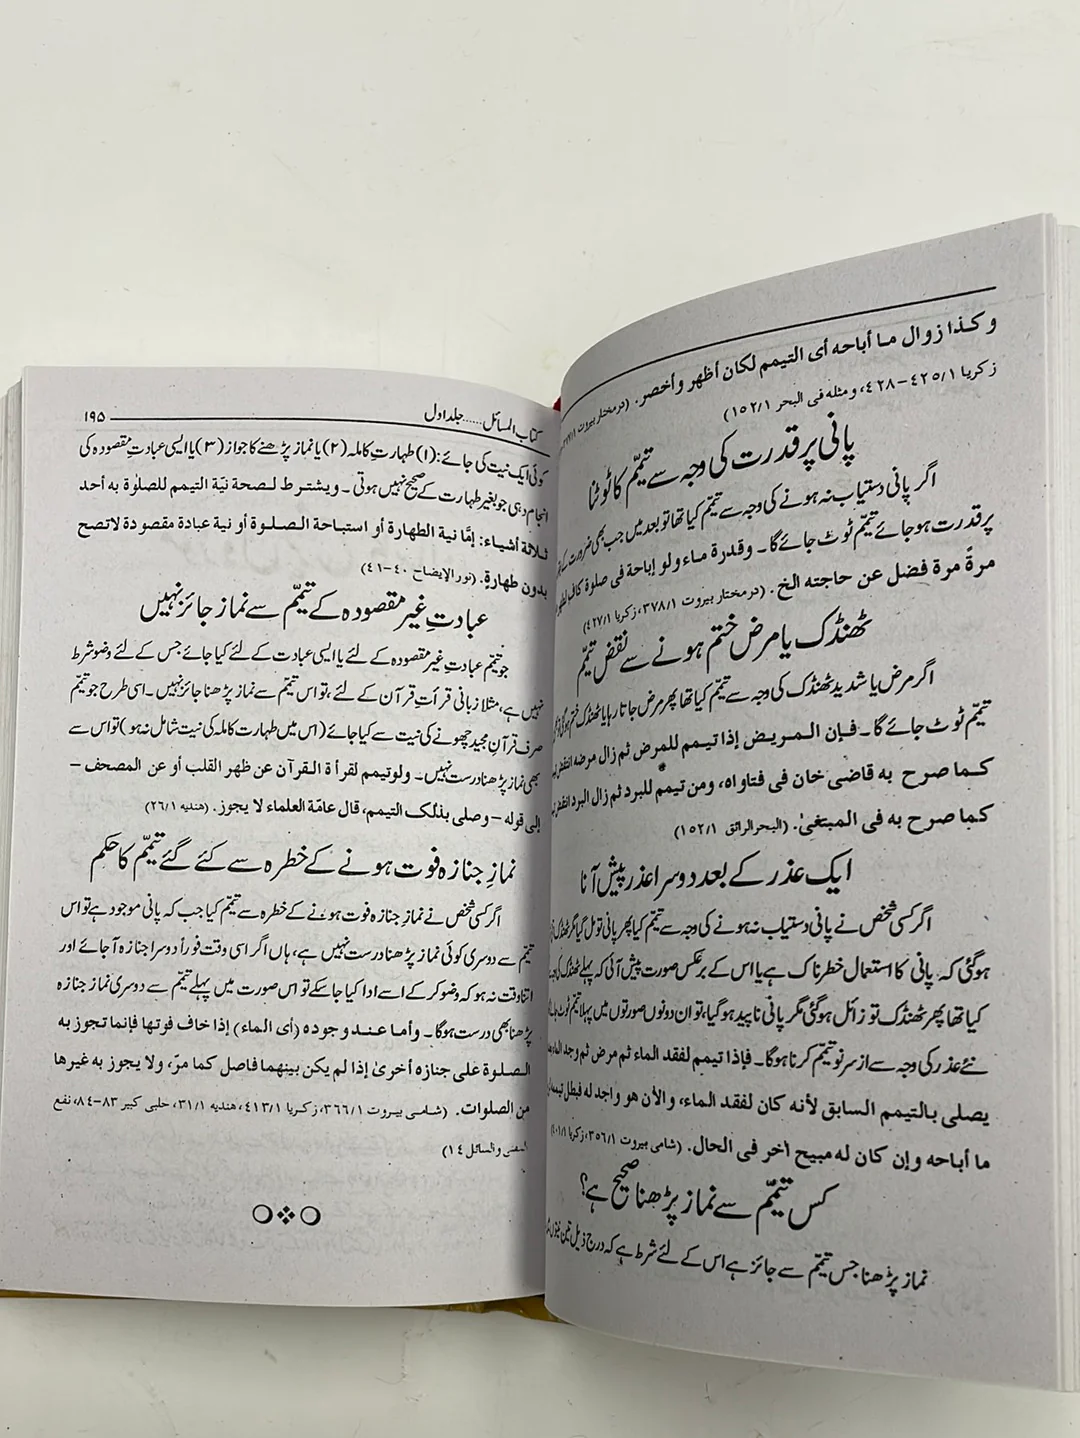 وكذا زوال ما أباحه أى التيمم لكان أظهر وأخصر. (درمختار بيروت
زكريا ٤٢٥/١–٤٢٨، ومثله فى البحر ١٥٢/١)
پانی پر قدرت کی وجہ سے تیمّم کا ٹوٹنا
اگر پانی دستیاب نہ ہونے کی وجہ سے تیمّم کیا تھا تو بعد میں جب بھی ضرورت کے
پر قدرت ہوجائے تیمّم ٹوٹ جائے گا۔ وقدرة ماء ولو إباحة فى صلوة كاف
مرةً مرة فضل عن حاجته الخ. (درمختار بيروت ٣٧٨/١، زكريا ٤٢٧/١)
ٹھنڈک یا مرض ختم ہونے سے نقض تیمّم
اگر مرض یا شدید ٹھنڈک کی وجہ سے تیمّم کیا تھا پھر مرض جاتا رہا یا ٹھنڈک ختم ہوگئی تو
تیمّم ٹوٹ جائے گا۔ فإن المريض إذا تيمم للمرض ثم زال مرضه انتقض
كما صرح به قاضى خان فى فتاواه، ومن تيمم للبرد ثم زال البرد انتقض
كما صرح به فى المبتغىٰ. (البحرالرائق ١٥٢/١)
ایک عذر کے بعد دوسرا عذر پیش آنا
اگر کسی شخص نے پانی دستیاب نہ ہونے کی وجہ سے تیمّم کیا پھر پانی تو مل گیا مگر ٹھنڈک
ہوگئی کہ پانی کا استعمال خطرناک ہے یا اس کے برعکس صورت پیش آئی کہ پہلے ٹھنڈک کی وجہ
کیا تھا پھر ٹھنڈک تو زائل ہوگئی مگر پانی ناپید ہوگیا، تو ان دونوں صورتوں میں پہلا تیمّم ٹوٹ جائے
نئے عذر کی وجہ سے از سرِ نو تیمّم کرنا ہوگا۔ فإذا تيمم لفقد الماء ثم مرض ثم وجد الماء
يصلى بالتيمم السابق لأنه كان لفقد الماء، والأن هو واجد له فبطل تيممه
ما أباحه وإن كان له مبيح أخر فى الحال. (شامى بيروت ٣٥٦/١، زكريا ٤٠١/١)
کس تیمّم سے نماز پڑھنا صحیح ہے؟
نماز پڑھنا جس تیمّم سے جائز ہے اس کے لئے شرط ہے کہ درج ذیل تین
کتاب المسائل......جلد اول ۱۹۵
کوئی ایک نیت کی جائے: (۱) طہارتِ کاملہ (۲) یا نماز پڑھنے کا جواز (۳) یا ایسی عبادتِ مقصودہ کی
انجام دہی جو بغیر طہارت کے صحیح نہیں ہوتی۔ ويشترط لصحة نيّة التيمم للصلوٰة به أحد
ثلاثة أشياء: إمّا نية الطهارة أو استباحة الصلوة أو نية عبادة مقصودة لاتصح
بدون طهارةٍ. (نور الإيضاح ٤٠–٤١)
عبادتِ غیر مقصودہ کے تیمّم سے نماز جائز نہیں
جو تیمّم عبادتِ غیر مقصودہ کے لئے یا ایسی عبادت کے لئے کیا جائے جس کے لئے وضو شرط
نہیں ہے، مثلا زبانی قرأتِ قرآن کے لئے ،تو اس تیمّم سے نماز پڑھنا جائز نہیں۔ اسی طرح جو تیمّم
صرف قرآنِ مجید چھونے کی نیت سے کیا جائے (اس میں طہارت کاملہ کی نیت شامل نہ ہو) تو اس سے
بھی نماز پڑھنا درست نہیں۔ ولوتيمم لقرأة القرآن عن ظهر القلب أو عن المصحف –
إلى قوله – وصلى بذلك التيمم، قال عامّة العلماء لا يجوز. (هنديه ٢٦/١)
نمازِ جنازہ فوت ہونے کے خطرہ سے کئے گئے تیمّم کا حکم
اگر کسی شخص نے نمازِ جنازہ فوت ہونے کے خطرہ سے تیمّم کیا جب کہ پانی موجود ہے تو اس
تیمّم سے دوسری کوئی نماز پڑھنا درست نہیں ہے، ہاں اگر اسی وقت فوراً دوسرا جنازہ آجائے اور
اتنا وقت نہ ہو کہ وضو کرکے اسے ادا کیا جاسکے تو اس صورت میں پہلے تیمّم سے دوسری نمازِ جنازہ
پڑھنا بھی درست ہوگا۔ وأما عند وجوده (أى الماء) إذا خاف فوتها فإنما تجوز به
الصلوة على جنازه أخرىٰ إذا لم يكن بينهما فاصل كما مرّ، ولا يجوز به غيرها
من الصلوات. (شامى بيروت ٣٦٦/١، زكريا ٤١٣/١، هنديه ٣١/١، حلبى كبير ٨٣–٨٤، نفع
المفتى والسائل ١٤)